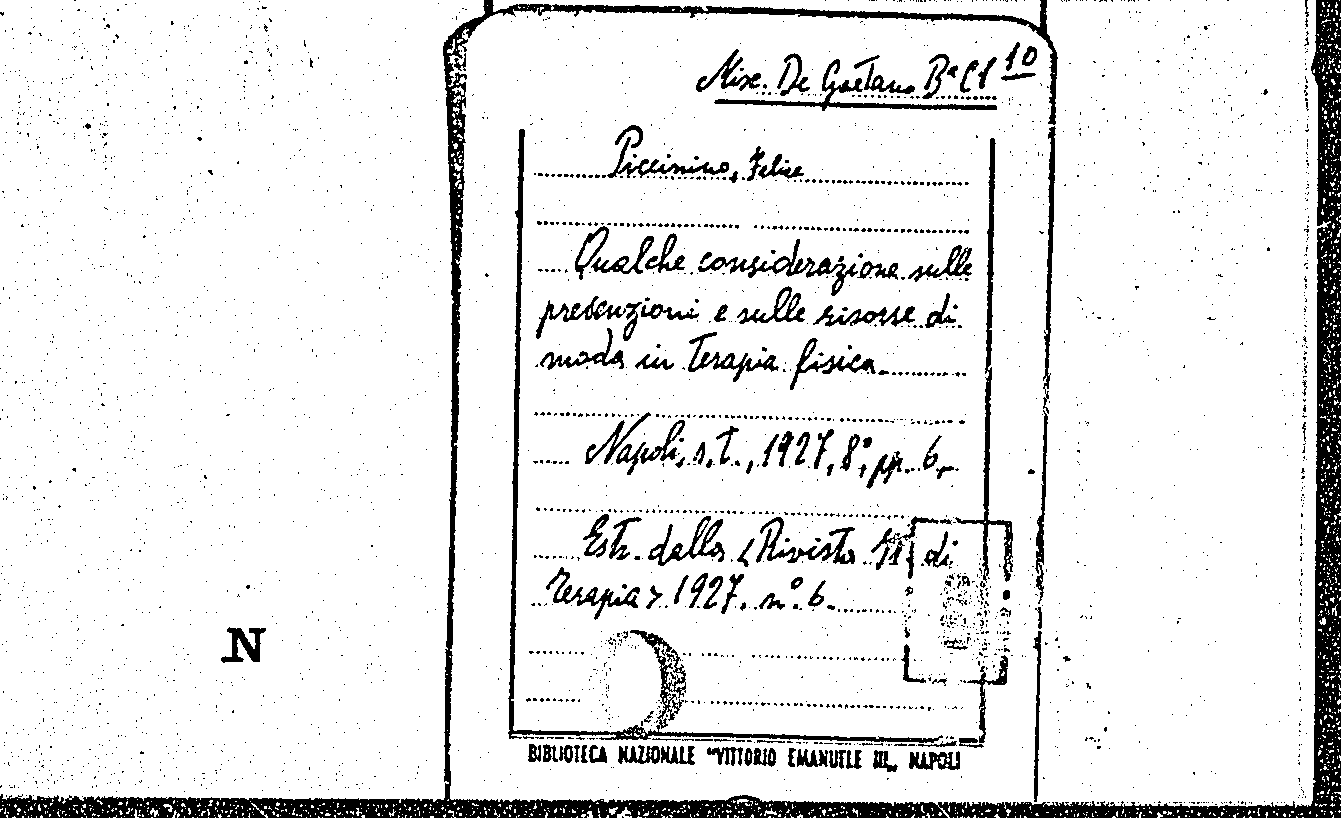 Misc. De Gaetano Bª C1 10
Piccinino, Felice
Qualche considerazione sulle
prevenzioni e sulle risorse di
moda in Terapia fisica.
Napoli, s.t., 1927, 8°, pp. 6.
Estr. dalla <Rivista di
Terapia> 1927. n°. 6.
N
BIBLIOTECA NAZIONALE "VITTORIO EMANUELE III„ NAPOLI